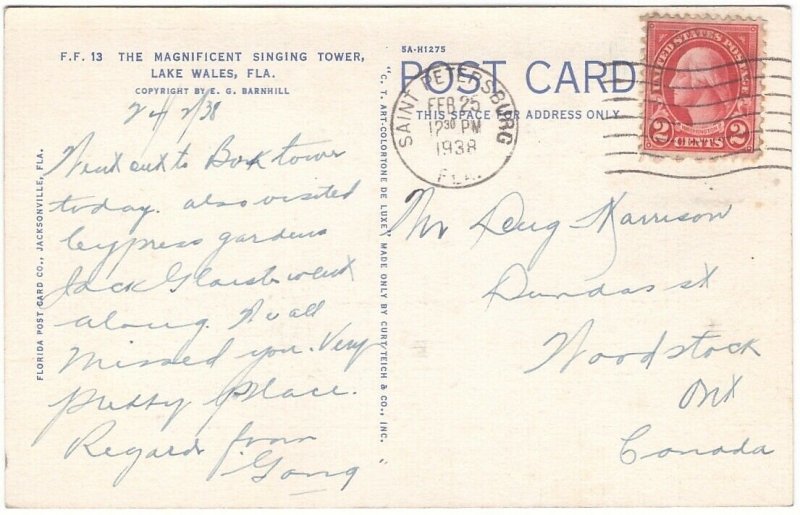 F.F. 13 THE MAGNIFICENT SINGING TOWER,
LAKE WALES, FLA.
COPYRIGHT BY E. G. BARNHILL
24/2/38
Went out to Bok tower
today. also visited
Cypress gardens
Jack went
along. We all
missed you. Very
pretty place.
Regards from
Gang
FLORIDA POST CARD CO., JACKSONVILLE, FLA.
"C. T. ART-COLORTONE DE LUXE" MADE ONLY BY CURT TEICH & CO., INC.
5A-H1275
POST CARD
THIS SPACE FOR ADDRESS ONLY
SAINT PETERSBURG
FEB 25
12 30 PM
1938
FLA.
UNITED STATES POSTAGE
WASHINGTON
2 CENTS 2
Mr Doug Harrison
Dundas st
Woodstock
Ont
Canada